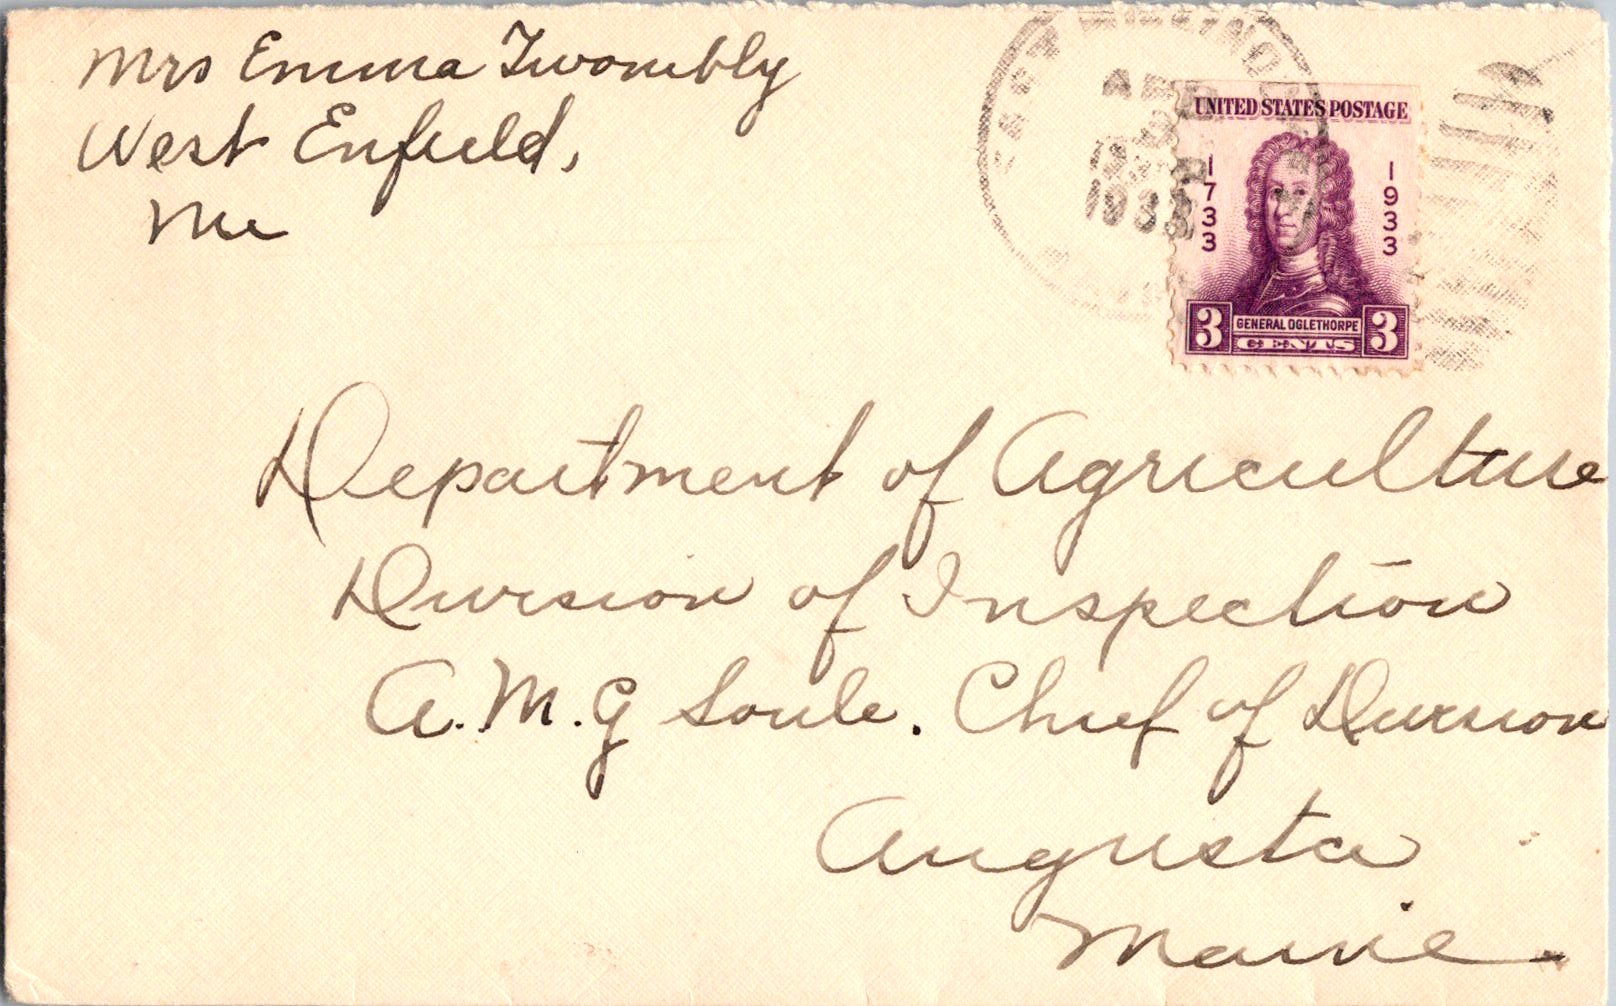 Mrs Emma Twombly
West Enfield,
Me
APR
1933
UNITED STATES POSTAGE
1733
1933
3
GENERAL OGLETHORPE
CENTS
3
Department of Agriculture
Division of Inspection
A. M. G Soule. Chief of Division
Augusta
Maine